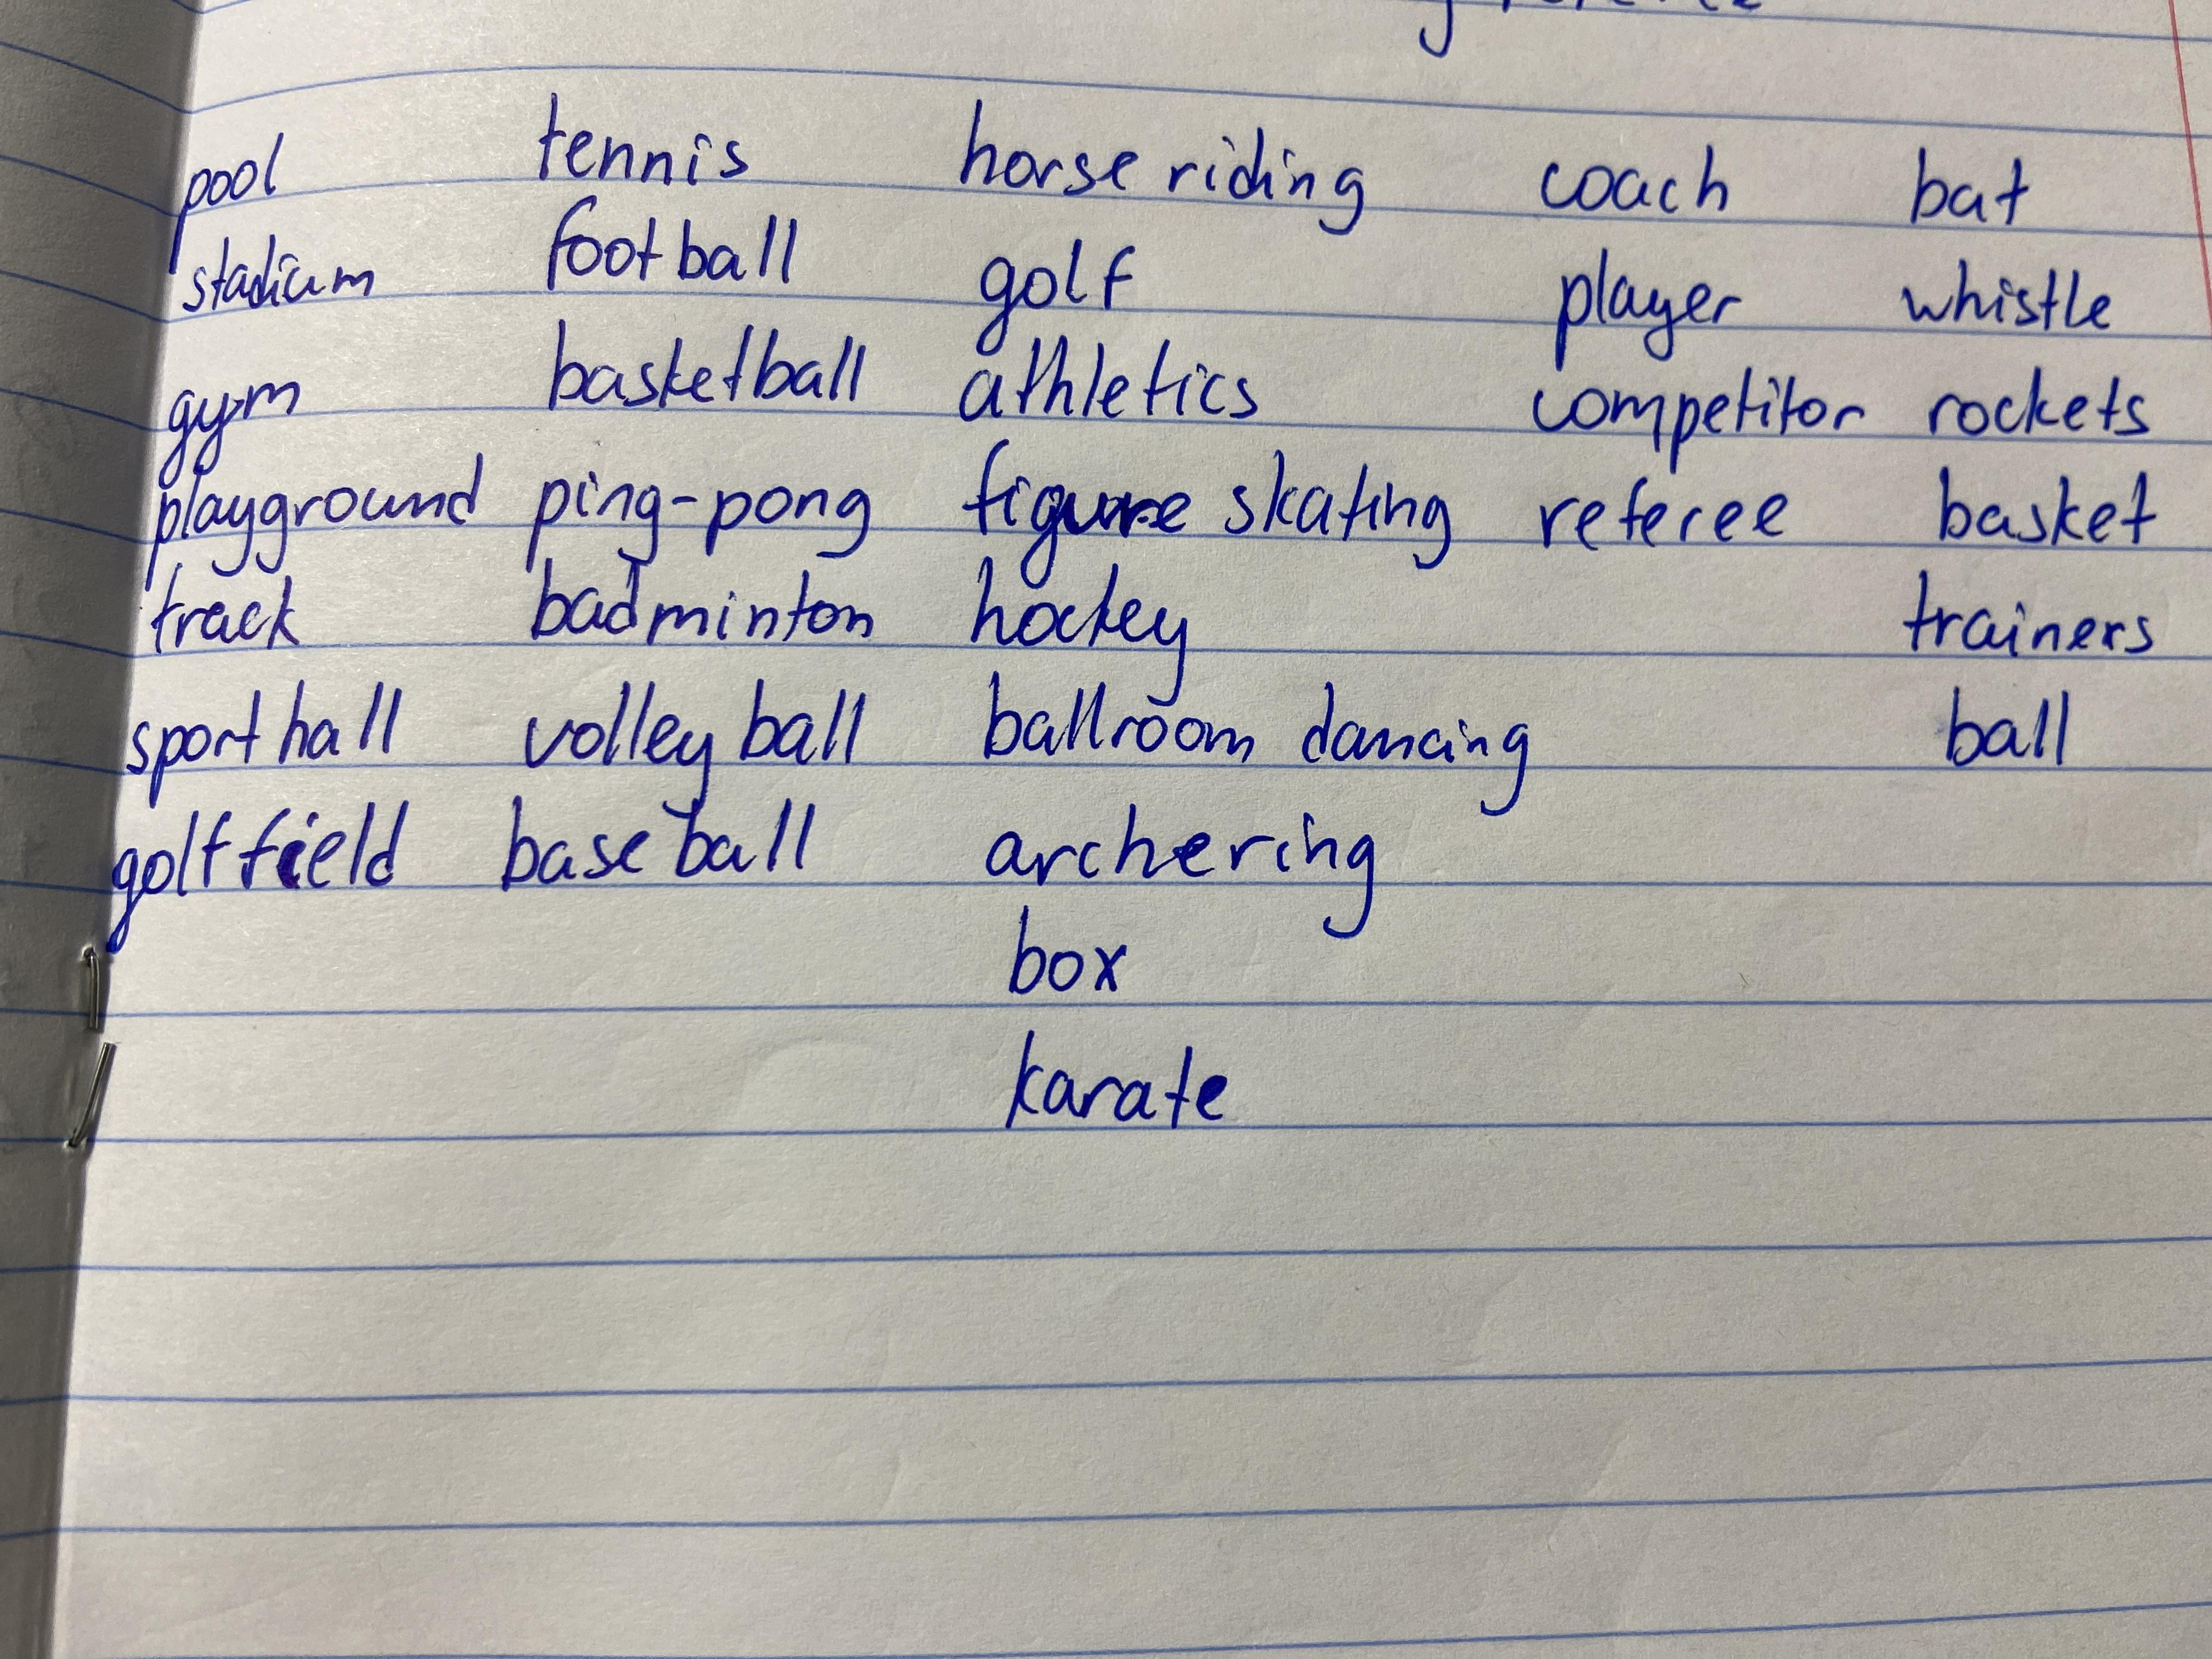 pool tennis horse riding coach bat
stadium football golf player whistle
gym basketball athletics competitor rockets
playground ping-pong figure skating referee basket
track badminton hockey trainers
sport hall volley ball ballroom dancing ball
golf field base ball archering
box
karate